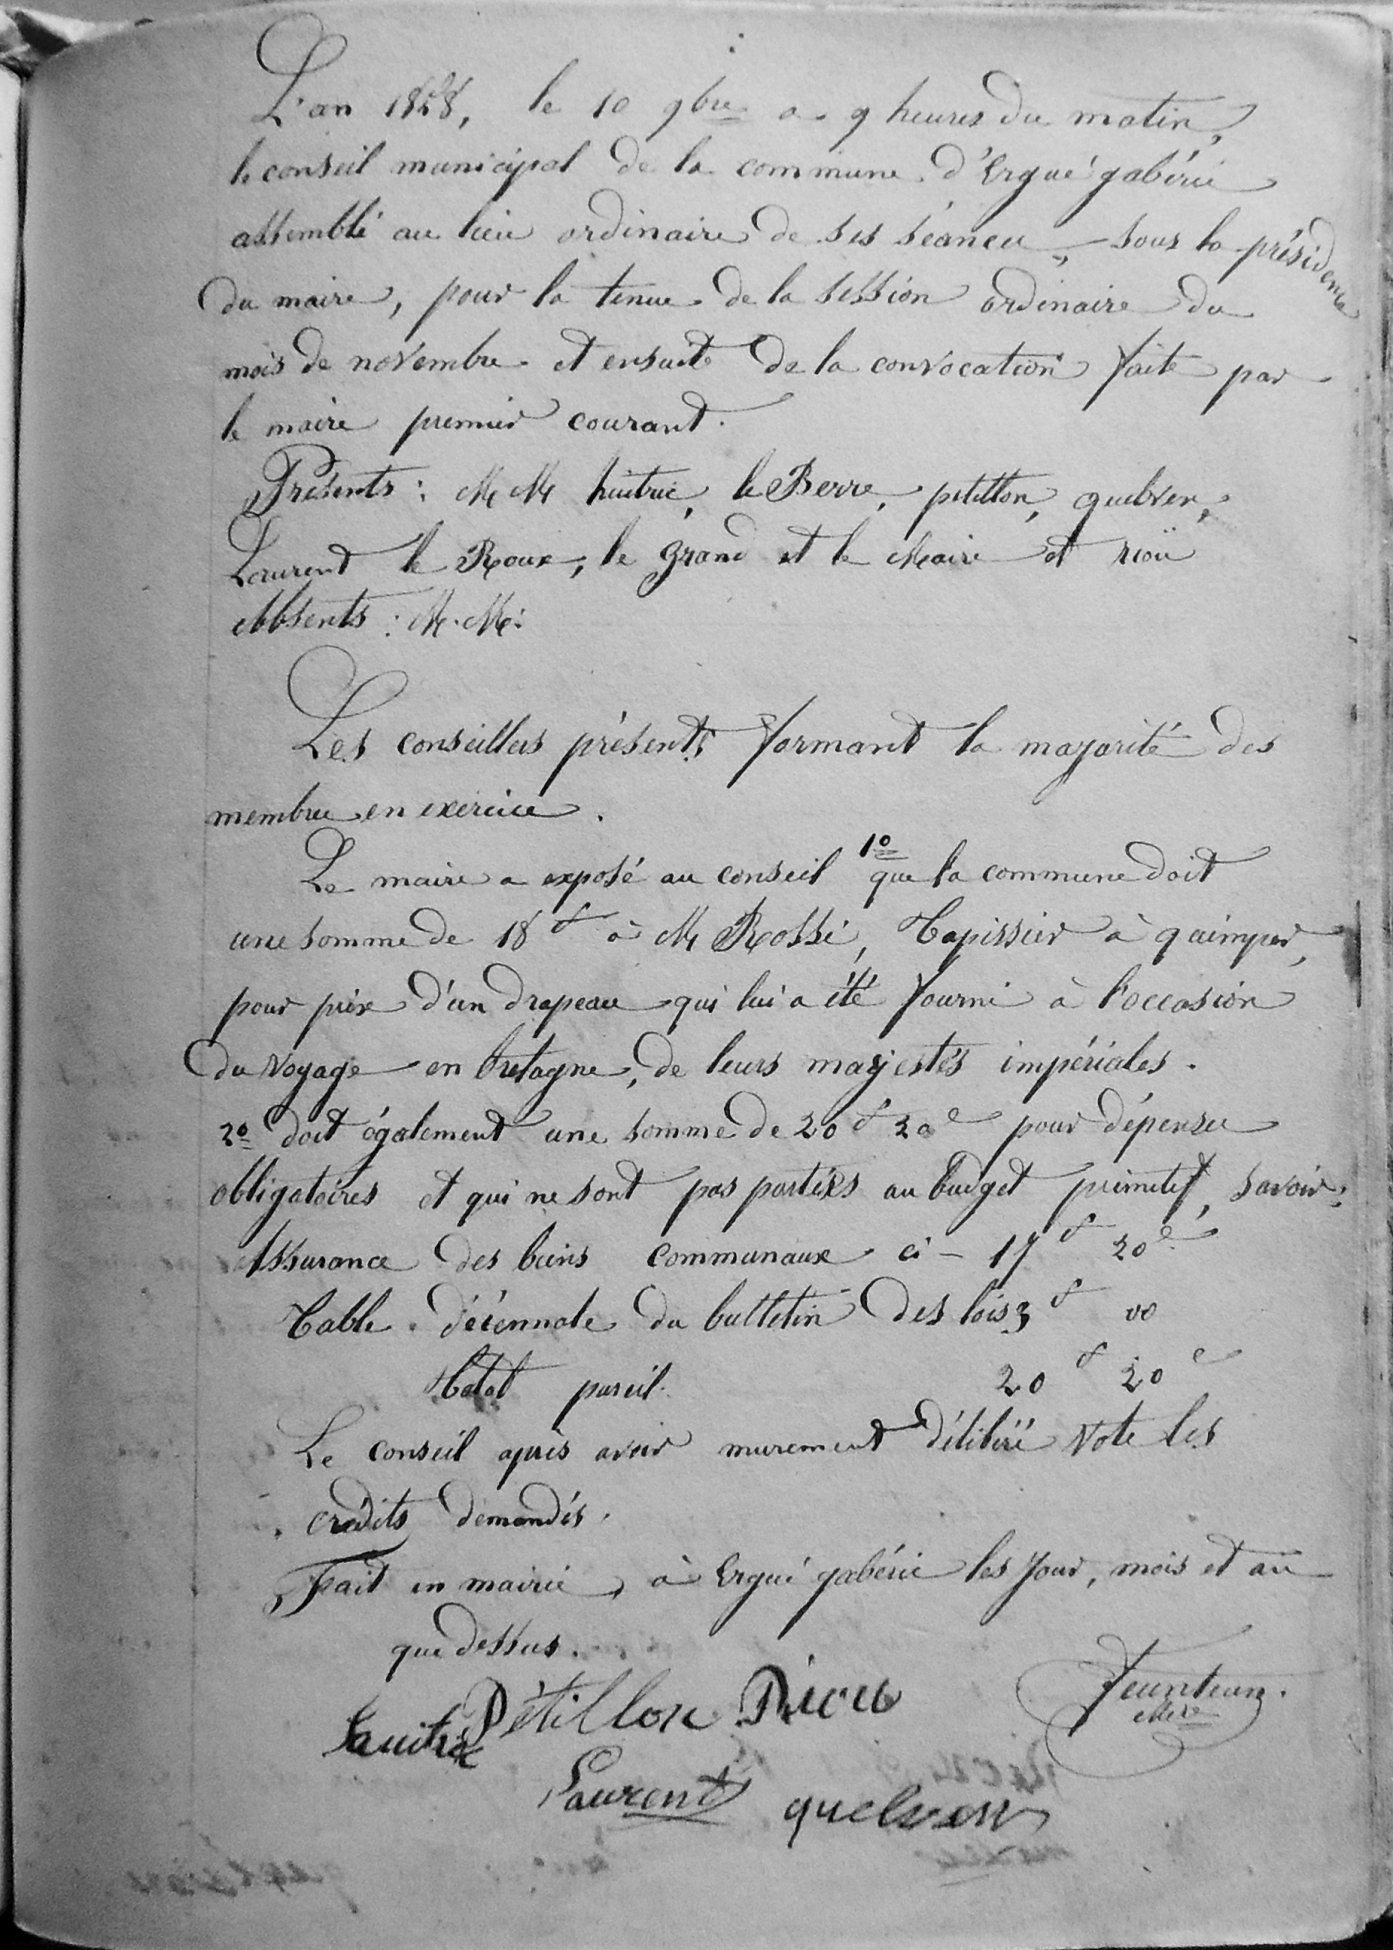 L'an 1858, le 10 9bre a 9 heures du matin,
le conseil municipal de la commune d'Ergué gabéric
assemblé au lieu ordinaire de ses séances, sous la présidence
du maire, pour la tenue de la session ordinaire du
mois de novembre et ensuite de la convocation faite par
le maire premier courant.
Présents : MM huitric, le Berre, petillon, quelven,
Laurent le Roux, le grand et le Maire et riou
Absents : M.M:
Les conseillers présents formant la majorité des
membres en exercice.
Le maire a exposé au conseil 1º que la commune doit
une somme de 18 f à M Rossi, Tapissier à quimper,
pour prix d'un drapeau qui lui a été fourni à l'occasion
du voyage en bretagne, de leurs majestés impériales.
2º doit également une somme de 20 f 20 c pour dépenses
obligatoires et qui ne sont pas portées au budget primitif, savoir:
Assurance des biens communaux ci - 17 f 20 c
Table décennale du bulletin des lois 3 f 00
Total pareil 20 f 20 c
Le conseil après avoir murement délibéré vote les
crédits demandés.
Fait en mairie, à Ergué gabéric les jour, mois et an
que dessus.
Pétillon Riou
huitric
Laurent quelven